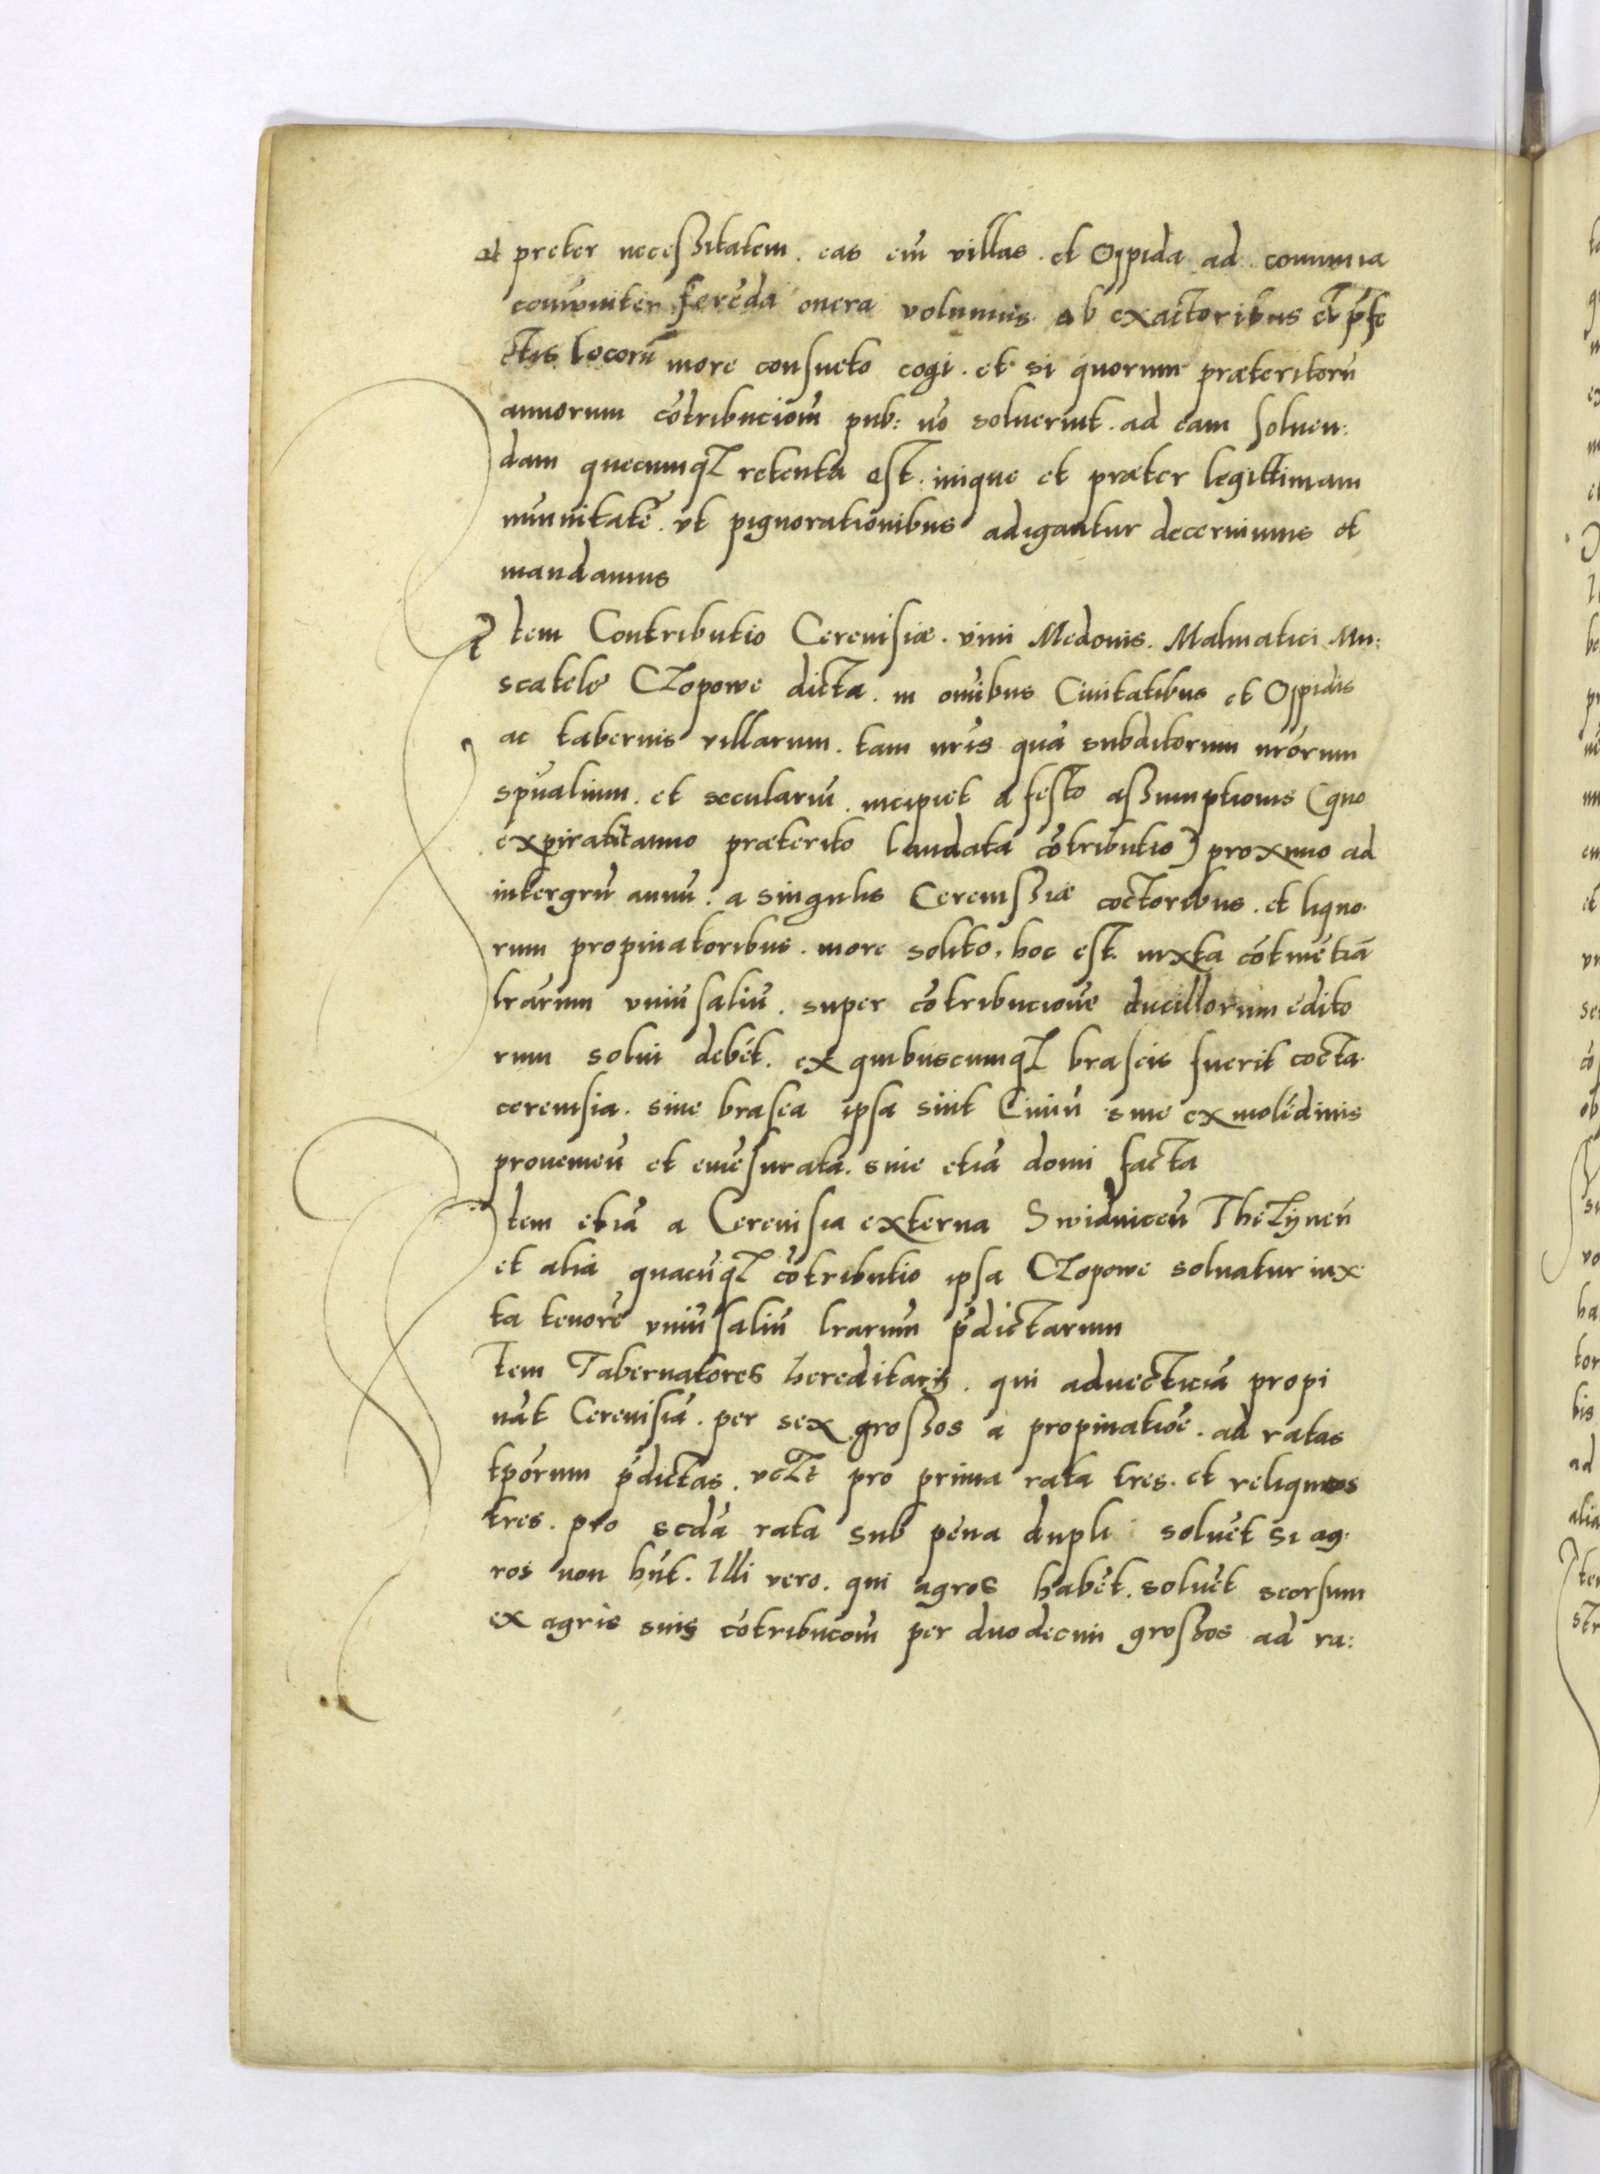 et preter necessitatem. eas em̄ villas. et Oppida ad communia
communiter ferēda onera volumus ab exactoribus et p̄fe
ctis locorū more consueto cogi. et si quorum præteritorū
annorum cōtribuciom̄ pub: nō soluerint. ad eam soluen:
dam quecumqȝ retenta est. inique et præter legittimam
immūitatē. vt pignorationibus adigantur decernimus et
mandamus
Item Contributio Cereuisiæ. vini Medonis. Malmatici Mu:
scatele Czopowe dicta. in om̄ibus Ciuitatibus et Oppidis
ac tabernis villarum. tam nr̄is quā subditorum nr̄orum
sp̄ualium. et seculariū. incipiet a festo assumptionis (quo
expirabit anno præterito laudata cōtributio) proximo ad
intergrū annū. a singulis Cereuissiæ coctoribus. et liquo
rum propinatoribus. more solito, hoc est. iuxta cōtinētiā
lr̄arum vniūsaliū. super cōtribucione ducillorum edito
rum solui debēt. ex quibuscumqȝ braseis fuerit cocta
cereuisia. siue brasea ipsa sint Ciuiū siue ex molēdinis
prouenien̄ et emēsurata. siue etiā domi facta
Item etiā a Cereuisia externa Swidnicen̄ Thezynen̄
et alia quacūqȝ cōtributio ipsa Czopowe soluatur iux
ta tenorē vniūsaliū lr̄arum p̄dictarum
Item Tabernatores hereditarij. qui aduecticiā propi
nāt Cereuisiā. per sex grossos a propinatiōe. ad ratas
tp̄orum p̄dictas. vczt pro prima rata tres. et reliquos
tres. pro scdā rata sub pena dupli soluēt si ag
ros non hn̄t. Illi vero. qui agros habēt. soluēt seorsum
ex agris suis cōtribucom̄ per duodecim grossos ad ra: